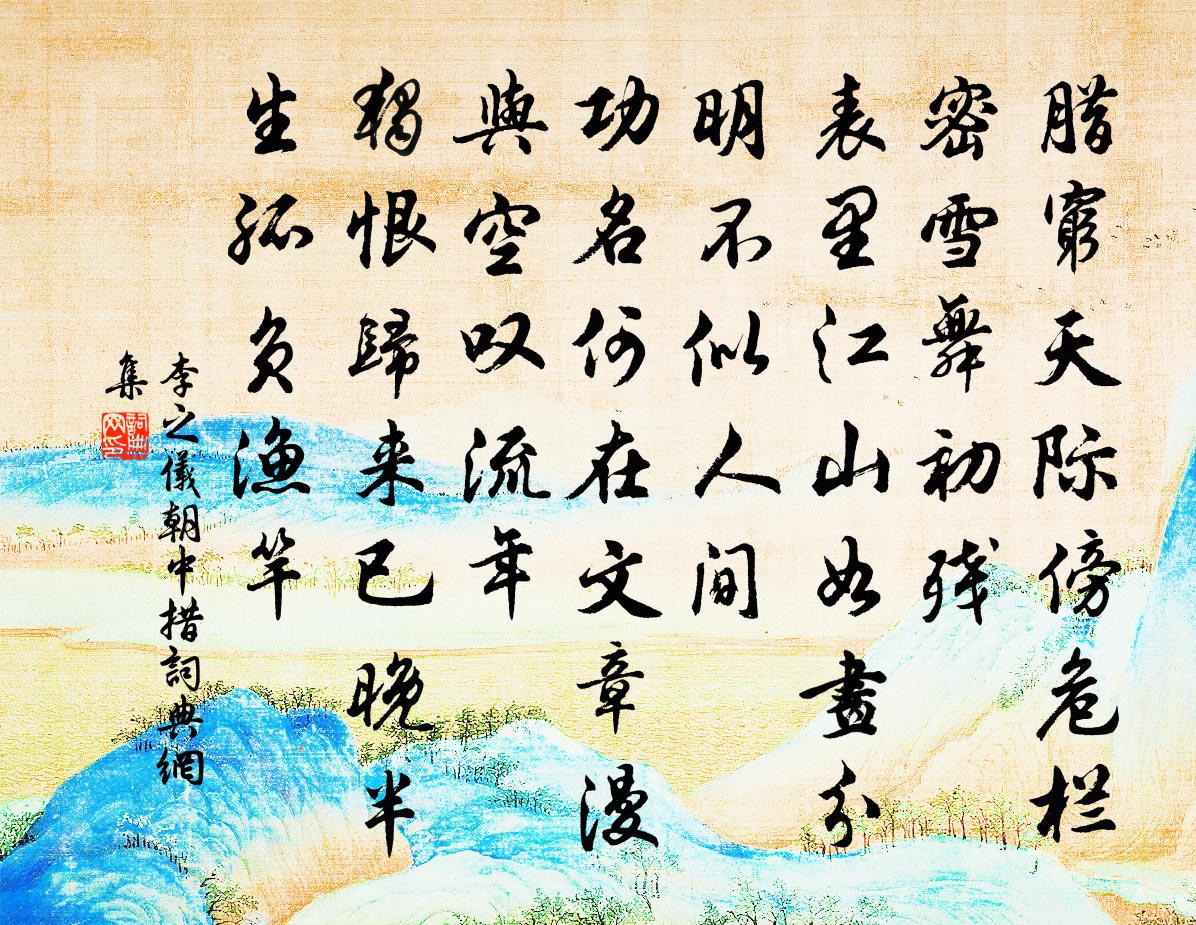 腊窮天际傍危栏
密雪舞初残
表里江山如畫分
明不似人间
功名何在文章漫
與空叹流年
独恨歸来已晚半
生孤负漁竿
李之儀朝中措詞典網
集
詞典網印